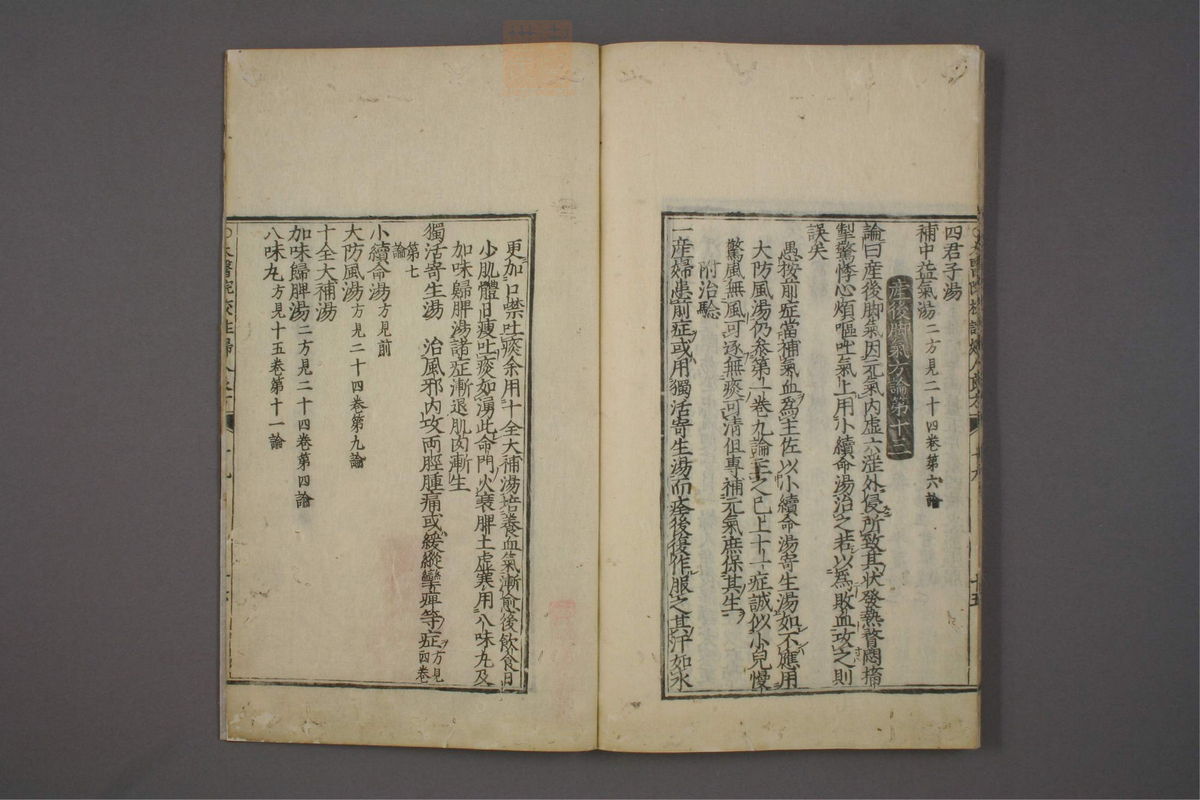 四君子湯
補中益氣湯二方見二十四卷第六論
産後脚氣方論第十三
論曰産後脚氣因元氣内虚六淫外侵所致其状發熱瞀悶搐
掣驚悸心煩嘔吐氣上用小續命湯治之若以爲敗血攻之則
誤矣
愚按前症當補氣血爲主佐以小續命湯寄生湯如不應用
大防風湯仍參第一卷九論主之已上十一症誠似小兒慢
驚風無風可逐無痰可清但專補元氣庶保其生
附治驗
一産婦患前症或用獨活寄生湯而痊後復作服之其汗如水
更加口噤吐痰余用十全大補湯培養血氣漸愈後飲食日
少肌體日瘦吐痰如湧此命門火衰脾土虚寒用八味丸及
加味歸脾湯諸症漸退肌肉漸生
獨活寄生湯 治風邪内攻兩脛腫痛或緩縱攣痺等症方見四卷
第七論
小續命湯方見前
大防風湯方見二十四卷第九論
十全大補湯
加味歸脾湯二方見二十四卷第四論
八味丸方見十五卷第十一論